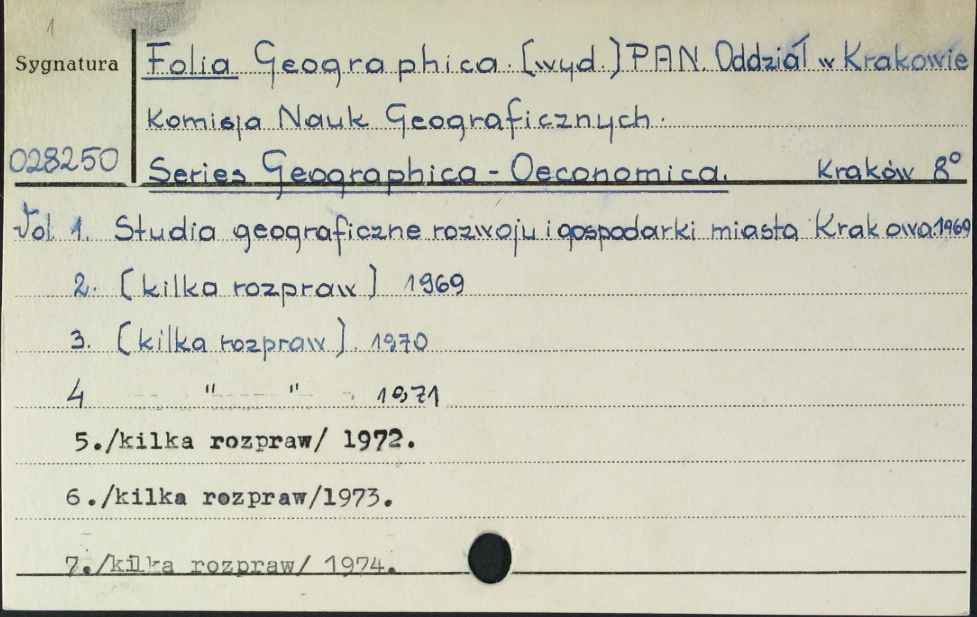 1
Sygnatura
Folia Geographica. [wyd.] PAN. Oddział w Krakowie
Komisja Nauk Geograficznych.
028250
Series Geographica - Oeconomica. Kraków 8°
Vol 1. Studia geograficzne rozwoju i gospodarki miasta Krakowa. 1969
2. [kilka rozpraw] 1969
3. [kilka rozpraw]. 1970
4 " " 1971
5./kilka rozpraw/ 1972.
6./kilka rozpraw/1973.
7./kilka rozpraw/ 1974.